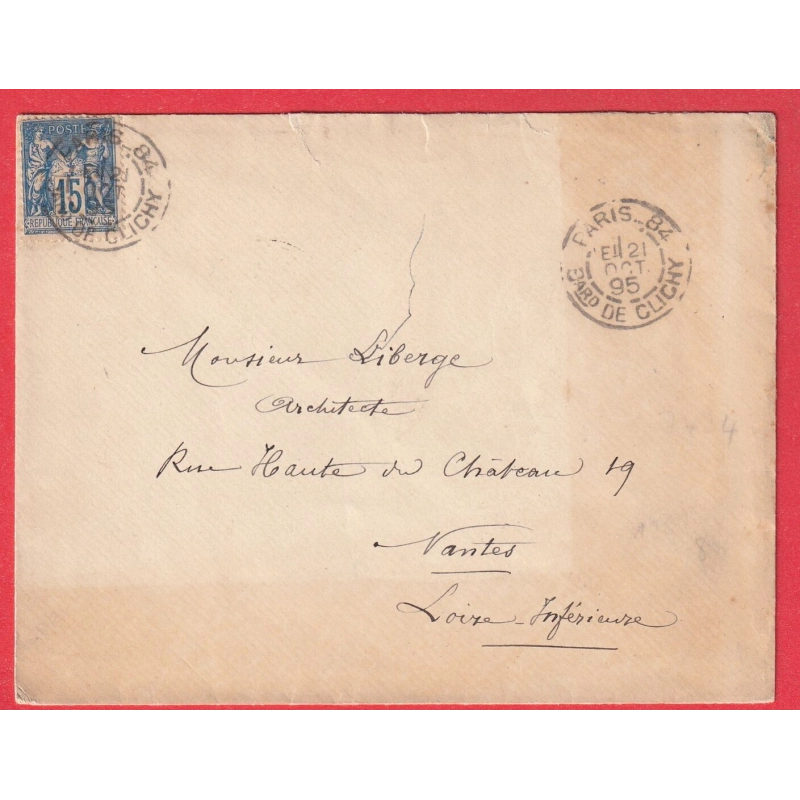 POSTE
15
REPUBLIQUE FRANÇAISE
PARIS_84
DE CLICHY
PARIS_84
21
OCT.
95
BARD DE CLICHY
Monsieur Liberge
Architecte
Rue Haute du Château 19
Nantes
Loire-Inférieure
4